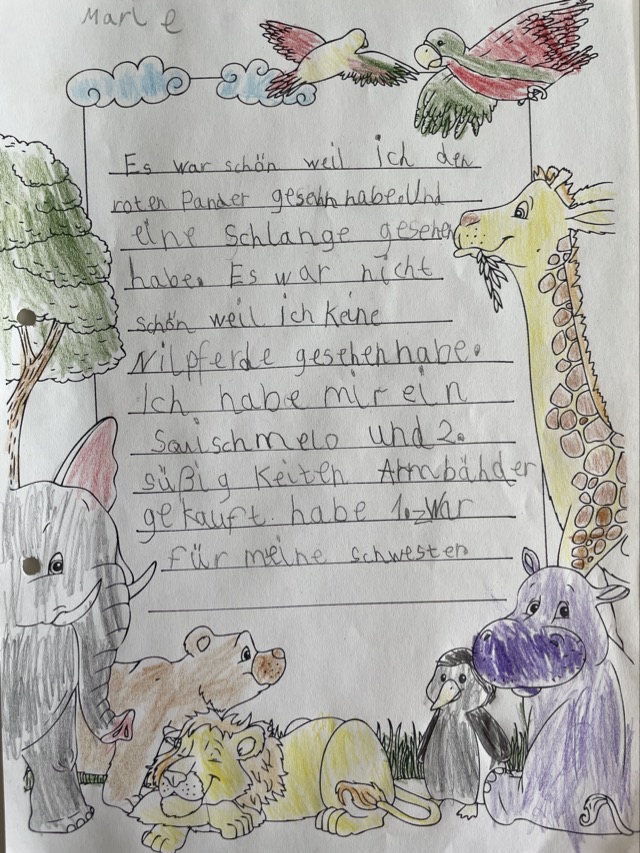 Marie
Es war schön weil ich den
roten Pander gesehn habe. Und
eine Schlange gesehen
habe. Es war nicht
schön weil ich keine
Nilpferde gesehen habe.
Ich habe mir ein
Sqischmelo und 2.
süßig keiten Armbähder
gekauft. habe 1. war
für meine schwester